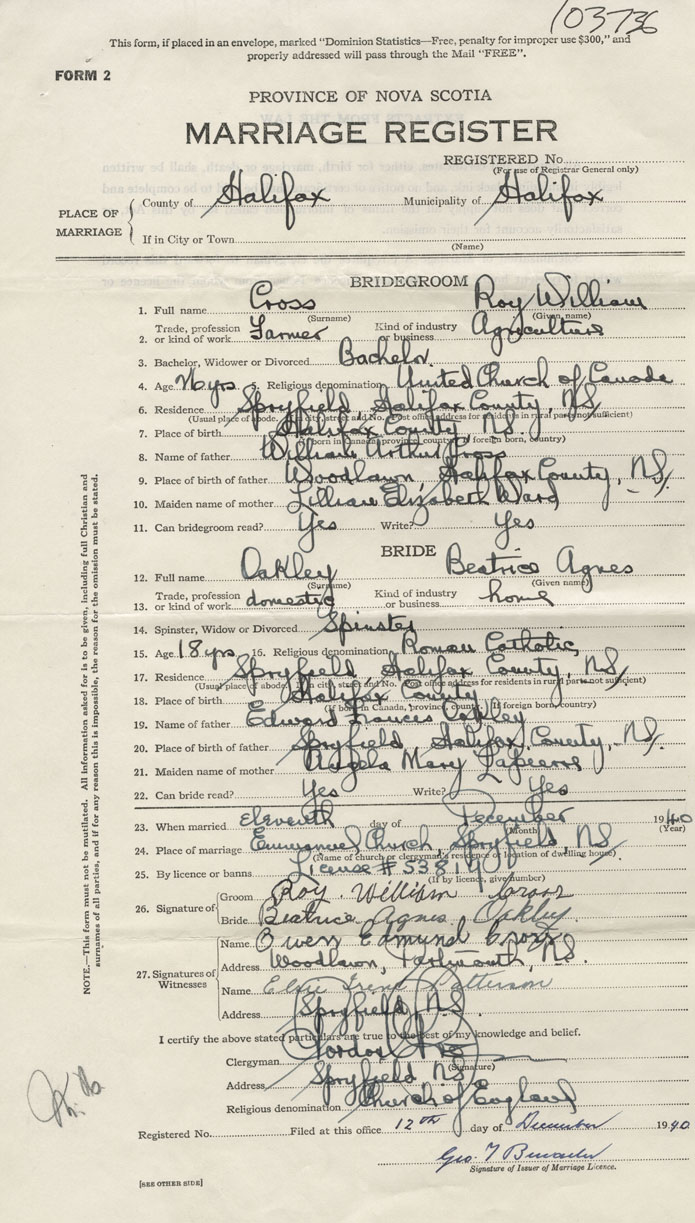 103736
This form, if placed in an envelope, marked "Dominion Statistics—Free, penalty for improper use $300," and
properly addressed will pass through the Mail "FREE".
FORM 2
PROVINCE OF NOVA SCOTIA
MARRIAGE REGISTER
REGISTERED No.
(For use of Registrar General only)
PLACE OF MARRIAGE
County of Halifax Municipality of Halifax
If in City or Town
(Name)
BRIDEGROOM
1. Full name Cross Roy William
(Surname) (Given name)
2. Trade, profession or kind of work Farmer Kind of industry or business Agriculture
3. Bachelor, Widower or Divorced Bachelor
4. Age 26 yrs 5. Religious denomination United Church of Canada
6. Residence Spryfield, Halifax County, NS
(Usual place of abode. If in city, street and No. Post office address for residents in rural parts not sufficient)
7. Place of birth Halifax County NS.
(If born in Canada, province, county. If foreign born, country)
8. Name of father William Arthur Cross
9. Place of birth of father Woodlawn, Halifax County, NS.
10. Maiden name of mother Lillian Elizabeth Ward
11. Can bridegroom read? Yes Write? Yes
BRIDE
12. Full name Oakley Beatrice Agnes
(Surname) (Given name)
13. Trade, profession or kind of work domestic Kind of industry or business home
14. Spinster, Widow or Divorced Spinster
15. Age 18 yrs 16. Religious denomination Roman Catholic
17. Residence Spryfield, Halifax County, NS
(Usual place of abode. If in city street and No. Post office address for residents in rural parts not sufficient)
18. Place of birth Halifax County
(If born in Canada, province, county. If foreign born, country)
19. Name of father Edward Frances Oakley
20. Place of birth of father Spryfield, Halifax County, NS.
21. Maiden name of mother Angela Mary Lapierre
22. Can bride read? Yes Write? Yes
23. When married Eleventh day of December 1940
(Month) (Year)
24. Place of marriage Emmanuel Church, Spryfield, NS.
(Name of church or clergyman's residence or location of dwelling house)
25. By licence or banns License #
(If by licence, give number)
26. Signature of
Groom Roy William Cross
Bride Beatrice Agnes Oakley
27. Signatures of Witnesses
Name Owen Edmund Cross
Address Woodlawn, Dartmouth, NS.
Name Elsie Irene Patterson
Address Spryfield, NS.
I certify the above stated particulars are true to the best of my knowledge and belief.
Clergyman Gordon
(Signature)
Address Spryfield NS
Religious denomination Church of England
Registered No. Filed at this office 12th day of December 1940
Geo. T
Signature of Issuer of Marriage Licence.
[SEE OTHER SIDE]
NOTE.—This form must not be mutilated. All information asked for is to be given, including full Christian and
surnames of all parties, and if for any reason this is impossible, the reason for the omission must be stated.